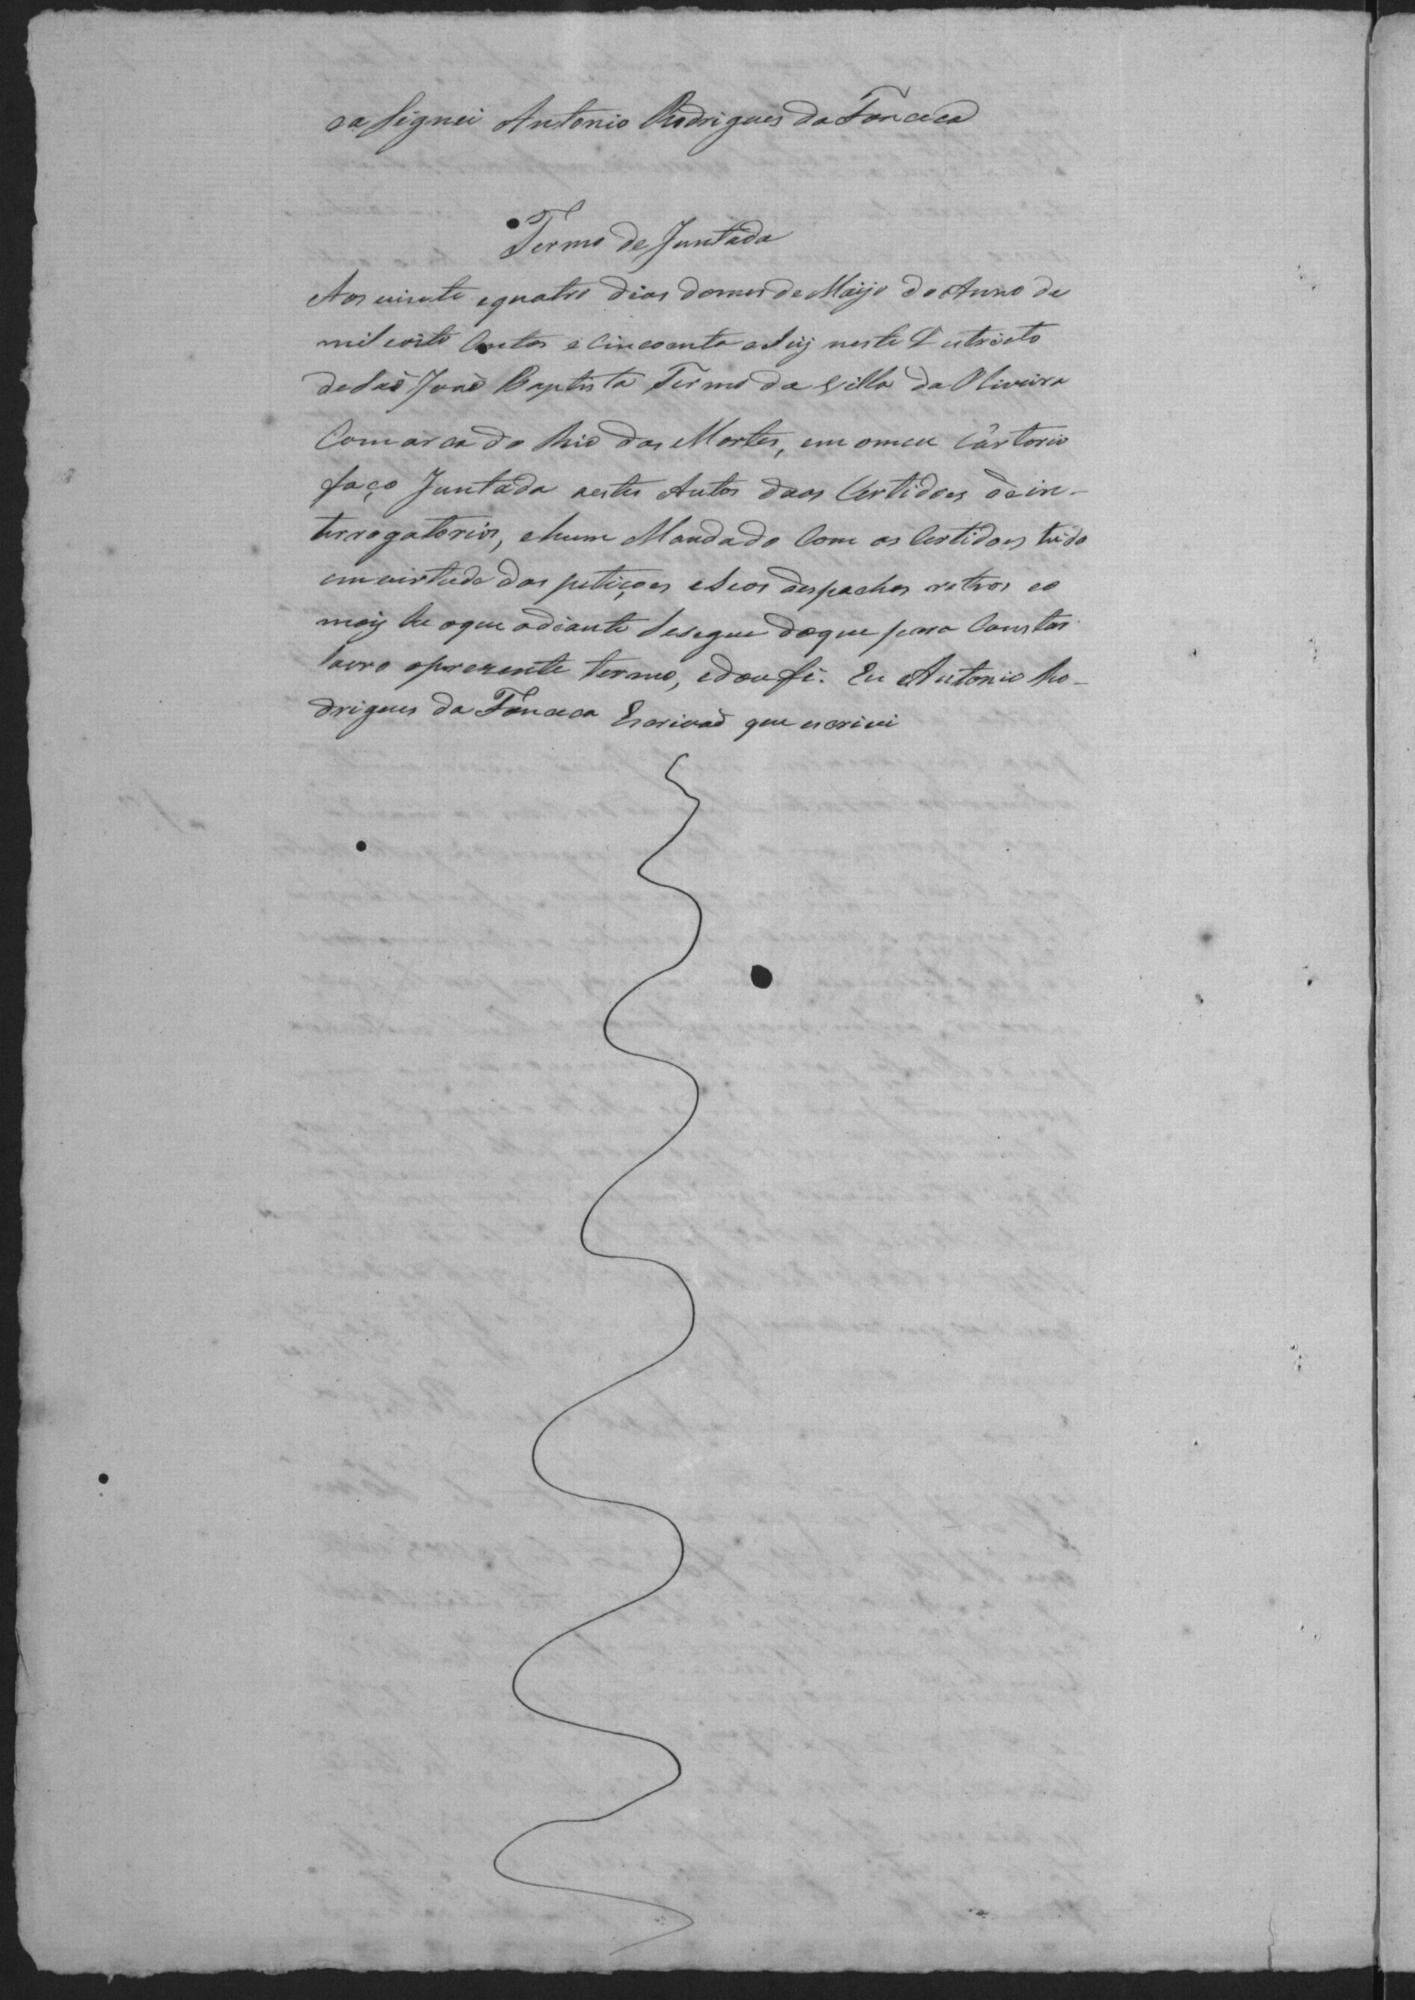 e a Signei Antonio Rodrigues da Fonceca
Termo de Juntada
Aos vinte equatro dias domes de Maijo do Anno de
mil oito Centos e Cincoenta eSeij neste Destricto
deSaõ Joaõ Baptista Termo da Villa da Oliveira
Comarca do Rio das Mortes, em omeu Cartorio
faço Juntada aestes Autos daas Certidoes de in-
terrogatorios, ehum Mandado Com as Certidoes tudo
emvirtude das petiçoes eSeos despachos retros eo
maij he oque adiante Sesegue doque para Constar
lavro oprezente termo, edoufé. Eu Antonio Ro-
drigues da Fonceca Escrivaõ que escrivi